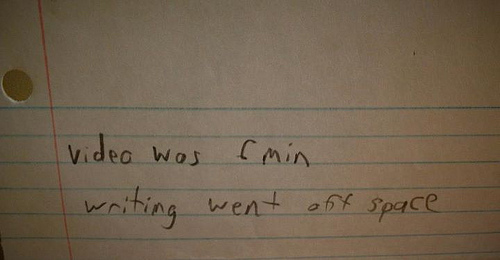 video was 5 min
writing went off space